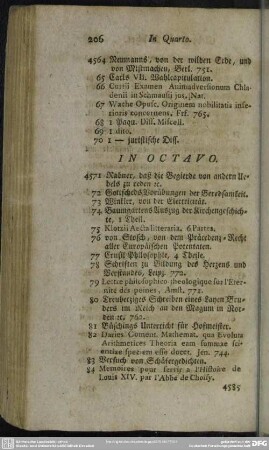 206 In Quarto.
4564 Neumanns, von der wilden Erde, und
von Mistmachen, Berl. 751.
65 Carls VII. Wahlcapitulation.
66 Curtii Examen Animadversionum Chla-
denii in Schmaussii jus, Nat.
67 Wachs Opusc. Originem nobilitatis infe-
rioris concernens. Frf. 765.
68 1 Paqu. Diss. Miscell.
69 1 dito.
70 1 — juristische Diss.
IN OCTAVO.
4571 Rabner, daß die Begierde von andern Ue-
bels zu reden ꝛc.
72 Gottscheds Vorübungen der Beredsamkeit.
73 Winkler, von der Electricität.
74 Baumgartens Auszug der Kirchengeschich-
te, 1 Theil.
75 Klotzii Acta litteraria. 6 Partes.
76 von Stosch, von dem Präcedenz-Recht
aller Europäischen Potentaten.
77 Ernsts Philosophie, 4 Theile.
78 Schriften zu Bildung des Herzens und
Verstandes, Leipz. 770.
79 Lettre philosophico theologique sur l'Eter-
nité des peines, Amst. 772.
80 Treuherziges Schreiben eines Layen Bru-
ders im Reich an den Magum in Nor-
den ꝛc. 762.
81 Büschings Unterricht für Hofmeister.
82 Daries Comment. Mathemat. qua Evolura
Arithmetices Theoria eam summae sci-
entiae speciem esse docet. Jen. 744.
83 Versuch von Schäfergedichten.
84 Memoires pour servir a l'Histoire de
Louis XIV. par l'Abbé de Choisy.
4585